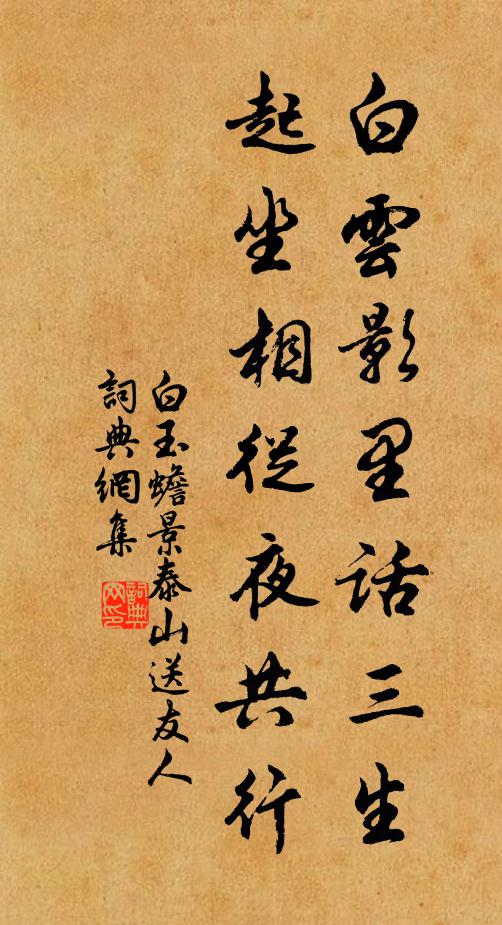 白雲影里话三生
起坐相從夜共行
白玉蟾景泰山送友人
詞典網集
詞典網印